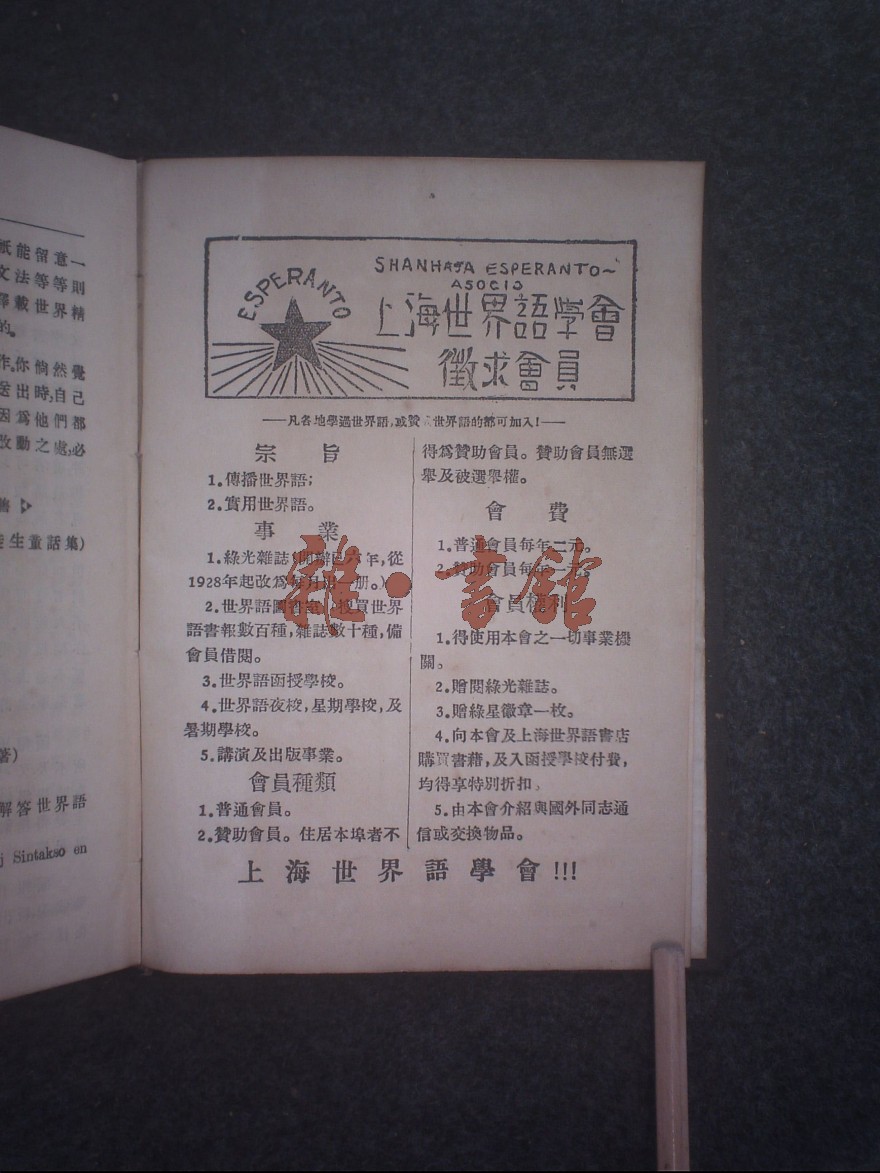 祇能留意一
文法等等則
譯載世界精
的。
作,你倘然覺
送出時,自己
因爲他們都
改動之處,必
生童話集)
著)
解答世界語
j Sintakso en
ESPERANTO
SHANHAJA ESPERANTO~
ASOCIO
上海世界語學會
徵求會員
——凡各地學過世界語,或贊 世界語的都可加入!——
宗旨
1.傳播世界語;
2.實用世界語。
事業
1.綠光雜誌(開辦已六年,從
1928年起改爲每月出一册。)
2.世界語圖書室 搜買世界
語書報數百種,雜誌數十種,備
會員借閱。
3.世界語函授學校。
4.世界語夜校,星期學校,及
暑期學校。
5.講演及出版事業。
會員種類
1.普通會員。
2.贊助會員。住居本埠者不
得爲贊助會員。贊助會員無選
舉及被選舉權。
會費
1.普通會員每年二元。
2.贊助會員每年一元。
會員權利
1.得使用本會之一切事業機
關。
2.贈閱綠光雜誌。
3.贈綠星徽章一枚。
4.向本會及上海世界語書店
購買書藉,及入函授學校付費,
均得享特別折扣。
5.由本會介紹與國外同志通
信或交換物品。
上海世界語學會!!!
雜·書館